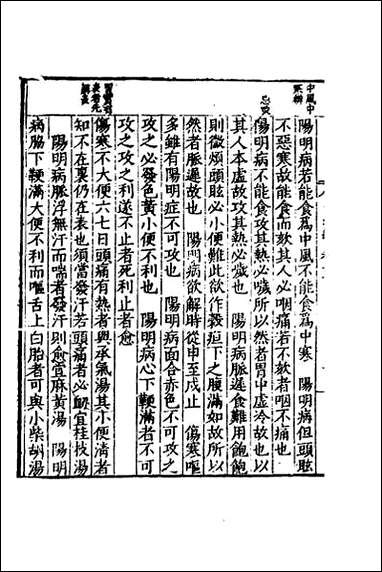 中風中
寒辨
陽明病若能食爲中風不能食爲中寒　陽明病但頭眩
不惡寒故能食而欬其人必咽痛若不欬者咽不痛也
忌攻
陽明病不能食攻其熱必噦所以然者胃中虛冷故也以
其人本虛故攻其熱必噦也　陽明病脈遲食難用飽飽
則微煩頭眩必小便難此欲作穀疸下之腹滿如故所以
然者脈遲故也　陽明病欲解時從申至戌止　傷寒嘔
多雖有陽明症不可攻也　陽明病面合赤色不可攻之
攻之必發色黃小便不利也　陽明病心下鞕滿者不可
攻之攻之利遂不止者死利止者愈
傷寒不大便六七日頭痛有熱者與承氣湯其小便淸者
知不在裏仍在表也須當發汗若頭痛者必衄宜桂枝湯
陽明病脈浮無汗而喘者發汗則愈宜麻黃湯　陽明
病脇下鞕滿大便不利而嘔舌上白胎者可與小柴胡湯